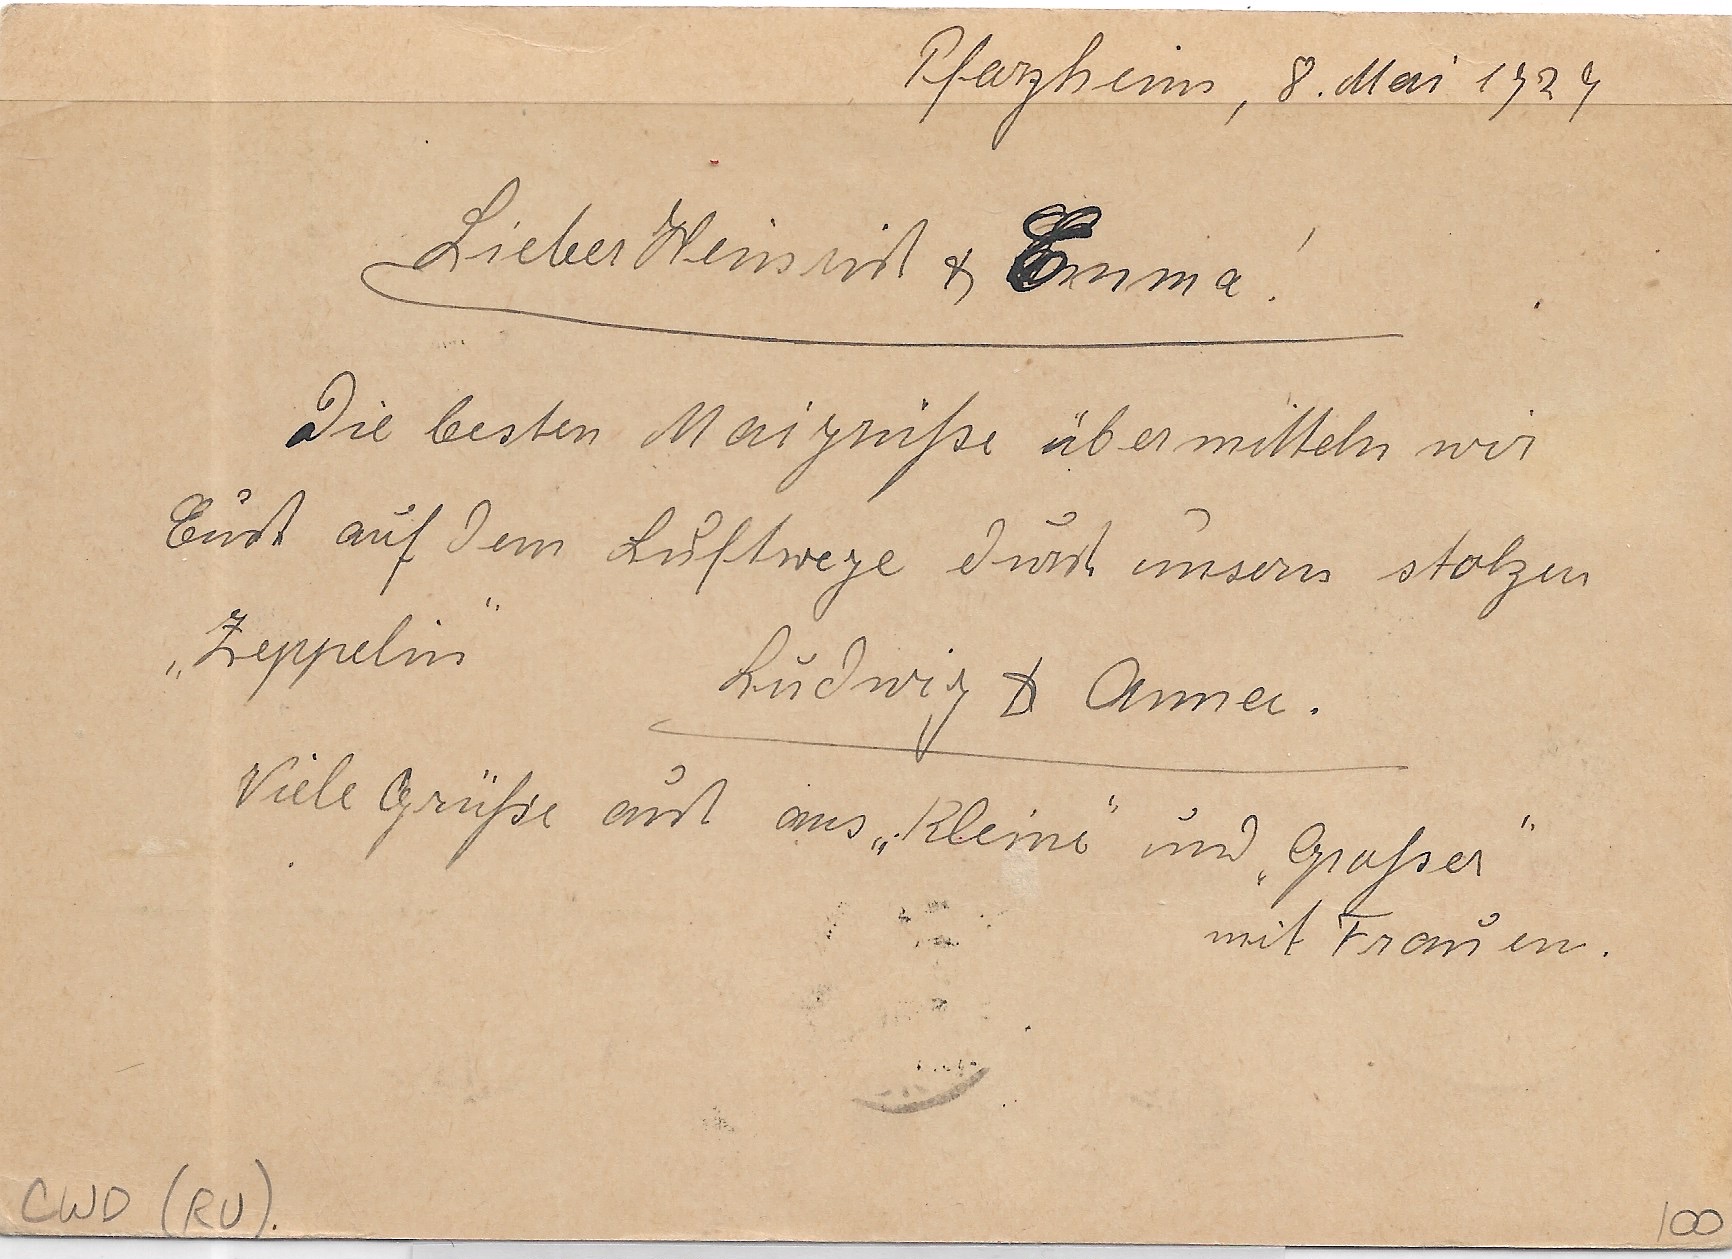 Pforzheim, 8. Mai 1929
Lieber Heinrich & Emma!
Die besten Maigrüße übermitteln wir
Euch auf dem Luftwege durch unsern stolzen
„Zeppelin“
Ludwig & Anna.
Viele Grüße auch aus „Kleine“ und „Großer“
mit Frauen.
CWD (RU).
100